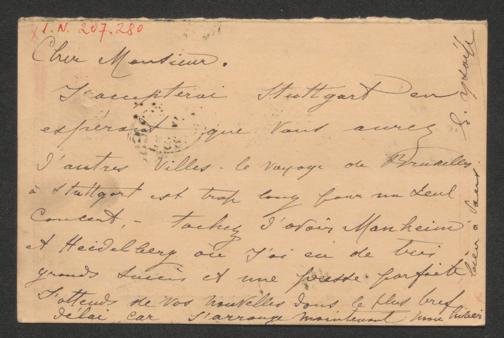 I.N. 207.280
Cher Monsieur.
J'accepterai Stuttgart en
espérant que vous aurez
d'autres villes - le voyage de Bruxelles
à Stuttgart est trop long pour un seul
concert, - tachez d'avoir Manheim
et Heidelberg où j'ai eu de très
grands succès et une presse parfaite
J'attends de vos nouvelles dans le plus bref
délai car j'arrange maintenant mon hiver
bien à vous
E. Ysaÿe